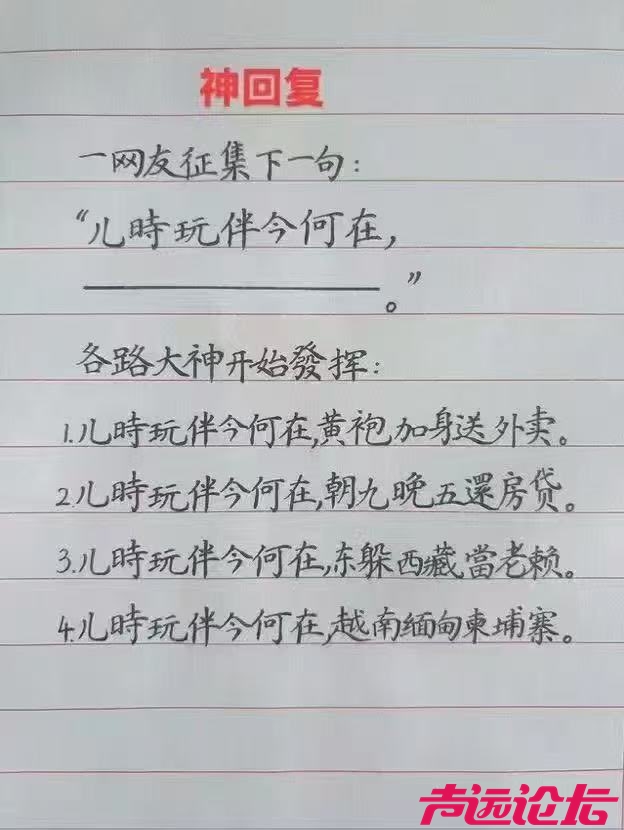 神回复
一网友征集下一句:
“儿時玩伴今何在,
。”
各路大神开始發挥:
1.儿時玩伴今何在,黄袍加身送外卖。
2.儿時玩伴今何在,朝九晚五還房贷。
3.儿時玩伴今何在,东躲西藏當老赖。
4.儿時玩伴今何在,越南缅甸柬埔寨。
声远论坛